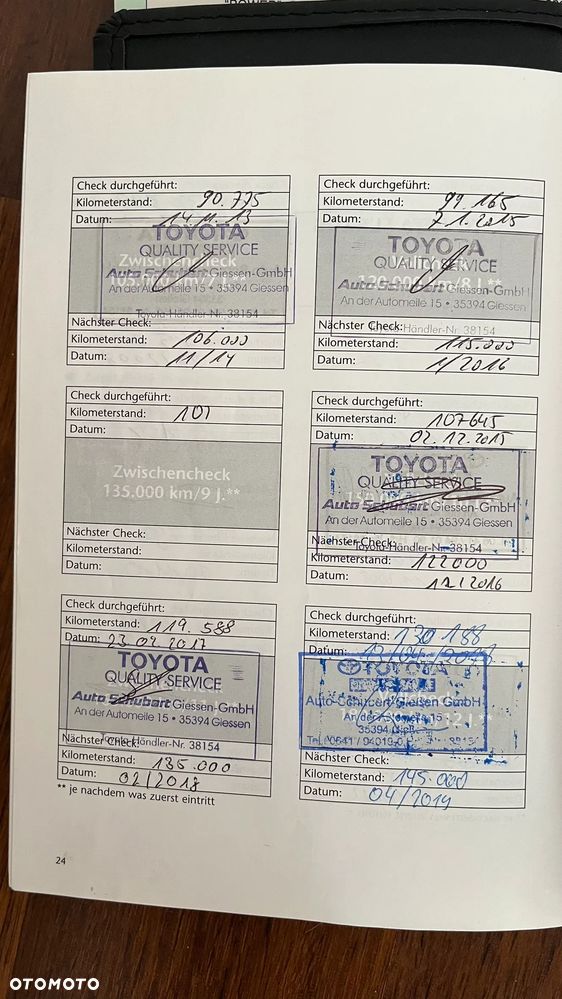 Check durchgeführt:
Kilometerstand: 90.775
Datum: 14 11. 13
TOYOTA
QUALITY SERVICE
Zwischencheck
105.000 km/7 J.**
Auto Schubart Giessen-GmbH
An der Automeile 15 • 35394 Giessen
Toyota-Händler-Nr. 38154
Nächster Check:
Kilometerstand: 106.000
Datum: 11/14
Check durchgeführt:
Kilometerstand: 99.165
Datum: 7.1.2015
TOYOTA
QUALITY SERVICE
120.000 km/8 J.**
Auto Schubart Giessen-GmbH
An der Automeile 15 • 35394 Giessen
Toyota-Händler-Nr. 38154
Nächster Check:
Kilometerstand: 115.000
Datum: 1/2016
Check durchgeführt:
Kilometerstand: 101
Datum:
Zwischencheck
135.000 km/9 J.**
Nächster Check:
Kilometerstand:
Datum:
Check durchgeführt:
Kilometerstand: 107645
Datum: 02.12.2015
TOYOTA
QUALITY SERVICE
Auto Schubart Giessen-GmbH
An der Automeile 15 • 35394 Giessen
Toyota-Händler-Nr. 38154
Nächster Check:
Kilometerstand: 122000
Datum: 12/2016
Check durchgeführt:
Kilometerstand: 119.588
Datum: 23.02.2017
TOYOTA
QUALITY SERVICE
Auto Schubart Giessen-GmbH
An der Automeile 15 • 35394 Giessen
Toyota-Händler-Nr. 38154
Nächster Check:
Kilometerstand: 135.000
Datum: 02/2018
Check durchgeführt:
Kilometerstand: 130 188
Datum:
TOYOTA
Auto-Schubart Gießen GmbH
An der Automeile 15
Nächster Check:
Kilometerstand: 145.000
Datum: 04/2019
** je nachdem was zuerst eintritt
24
OTOMOTO